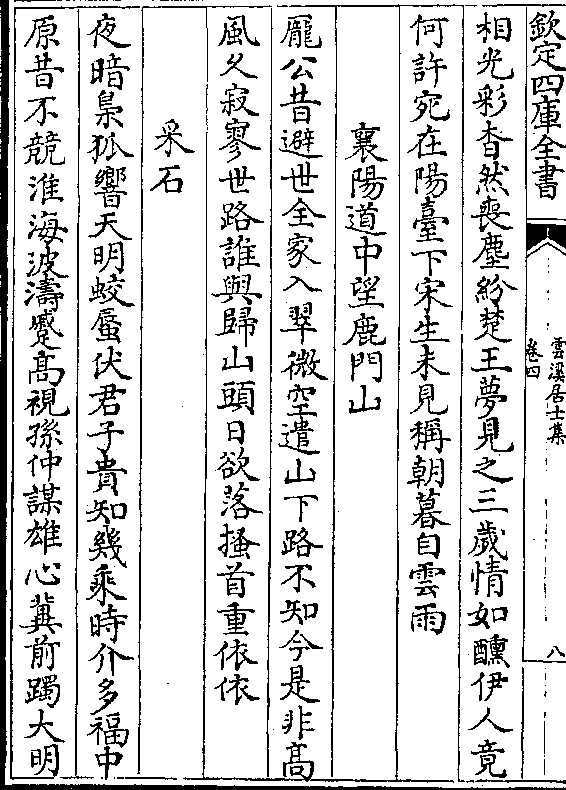 欽定四庫全書
雲溪居士集
卷四
八
相光彩杳然喪塵紛楚王夢見之三歲情如醺伊人竟
何許宛在陽臺下宋生未見稱朝暮自雲雨
襄陽道中望鹿門山
龐公昔避世全家入翠微空遣山下路不知今是非高
風久寂寥世路誰與歸山頭日欲落搔首重依依
采石
夜暗梟狐響天明蛟蜃伏君子貴知幾乘時介多福中
原昔不競淮海波濤蹙高視孫仲謀雄心冀前躅大明